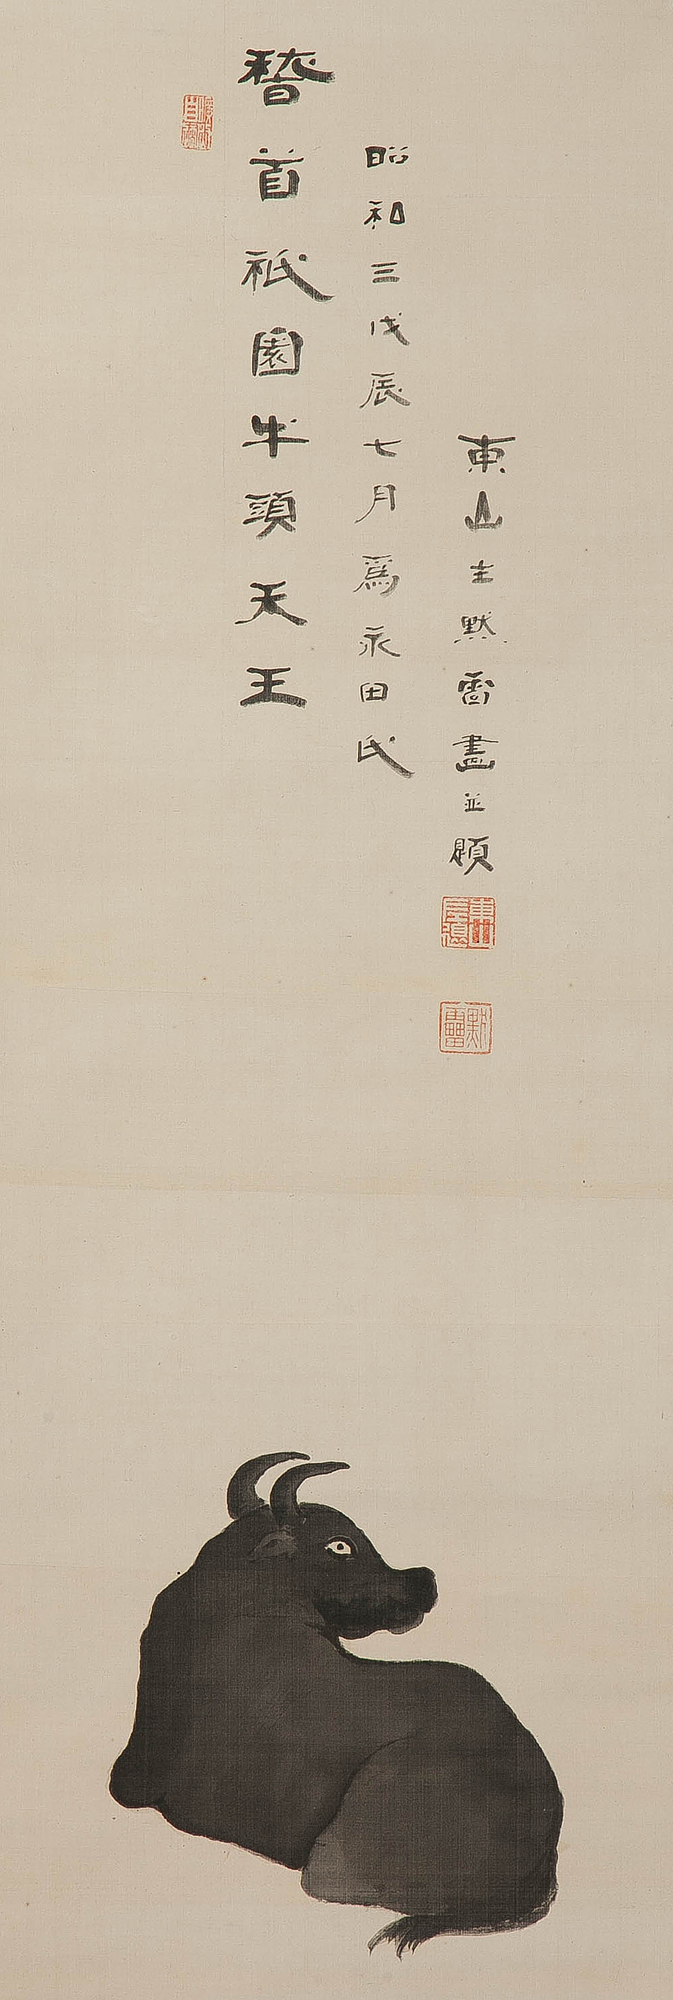 稽首祇園牛頭天王
昭和三戊辰七月爲永田氏
東山主默雷畫並題
默靁